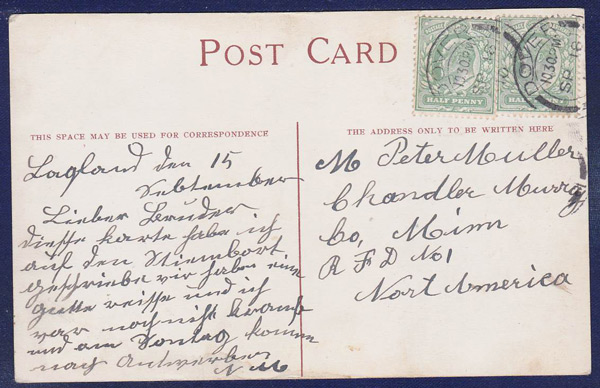 POST CARD
HALF PENNY
HALF PENNY
DOVER
10.30 PM
SP 18
THIS SPACE MAY BE USED FOR CORRESPONDENCE
Lagland den 15
Sebtember
Lieber Bruder
diesse karte habe ich
auf den Stiembort
geschriebe vir haben eine
gutte reisse und ich
var noch nicht krank
und am Sontag komme
nach Antwerben
N M
THE ADDRESS ONLY TO BE WRITTEN HERE
M Peter Muller
Chandler Murry
Co, Minn
R F D No1
Nort America